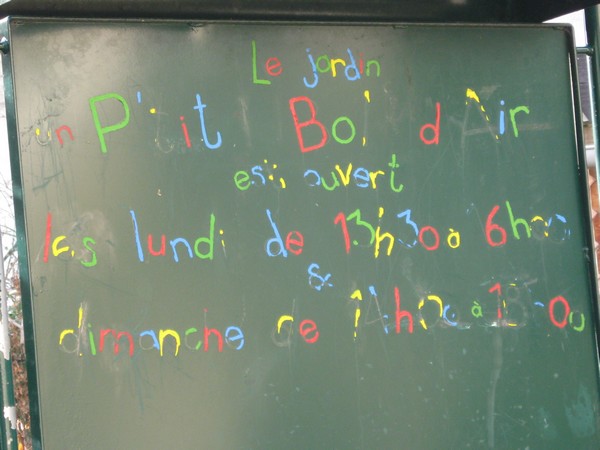 Le jardin
un P'tit Bol d'Air
est ouvert
les lundi de 13h30 à 6h00
&
dimanche de 14h00 à 18h00